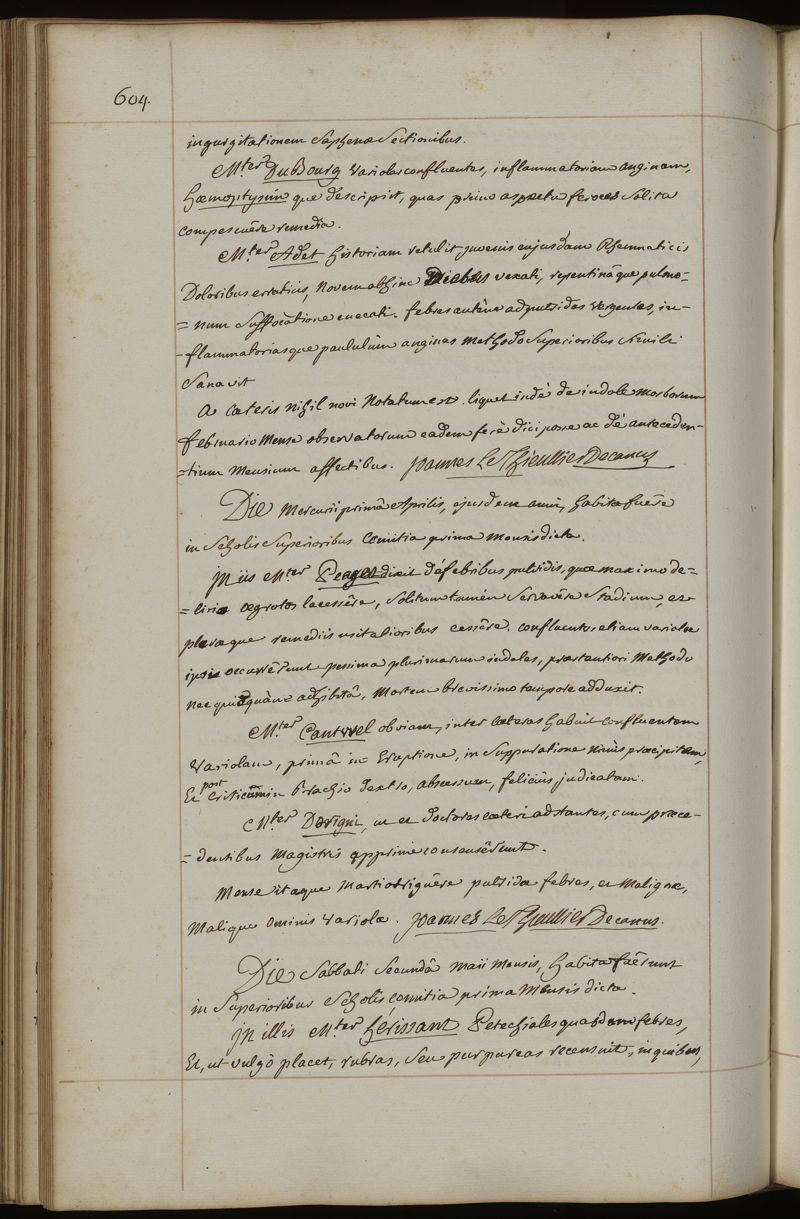 604.
ingurgitationem Saphenæ Sectionibus.
M.ter DuBourg variolas confluentes, inflammatoriam anginam,
hæmoptysim que descripsit, quas primo aspectu feroces Solita
compescuêre remedia.
M.ter Adet historiam retulit juvenis cujusdam Rheumaticis
Doloribus erraticis, novem abhinc Diebus vexati, repentinâque pulmo-
=num Suffocatione enecati. febres autem ad putridas vergentes, in-
-flammatoriasque paululùm anginas methodo Superioribus Simili
Sanavit
A cæteris nihil novi Notatum est. liquet indè de indole morborum
februario Mense observatorum eadem ferè dici posse ac dè anteceden-
=tium Mensium affectibus. Joannes Le Thieullier Decanus
Die Mercurii primâ Aprilis, ejusdem anni, habita fuêre
in Scholis Superioribus Comitia prima mensis dicta.
In iis M.ter Peaget dixit dè febribus putridis, quæ maximo de-
=lirio ægrotos lacessêre, Solitum tamen Servavêre Stadium, et
pleræque remediis usitatioribus cessêre. confluentes, etiam variolæ
ipsi occurrêrunt pessima plurimarum indoles, præstantiori Methodo
nec quiquàm adhibitâ, Mortem brevissimo tempore adduxit.
M.ter Cantwel obviam, inter cæteras habuit confluentem
Variolam, primâ in Eruptione, in Suppuratione nimis præcipitem,
Et post Criticum in brachio dextro, abscessum, feliciùs judicatam.
M.ter Dorigni, ut et doctores cæteri adstantes, cum præce-
=dentibus Magistris apprime consensêrunt.
Mense itaque Martio viguêre putridæ febres, et Malignæ,
Malique Ominis Variolæ. Joannes Le Thieullier Decanus.
Die Sabbati Secundâ Maii Mensis, habita fuêrunt
in Superioribus Scholis comitia prima Mensis dicta.
In illis M.ter hérissant Petechiales quasdam febres,
Et, ut vulgò placet, rubras, Seu purpureas recensuit, in quibus,